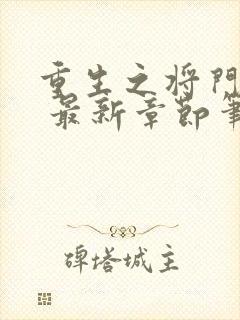 重生之将門
最新章節筆
碑塔城主